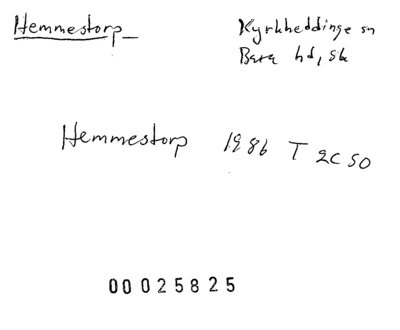 Hemmestorp
Kyrkheddinge sn
Bara hd, Sk
Hemmestorp 1986 T 2C 50
00025825